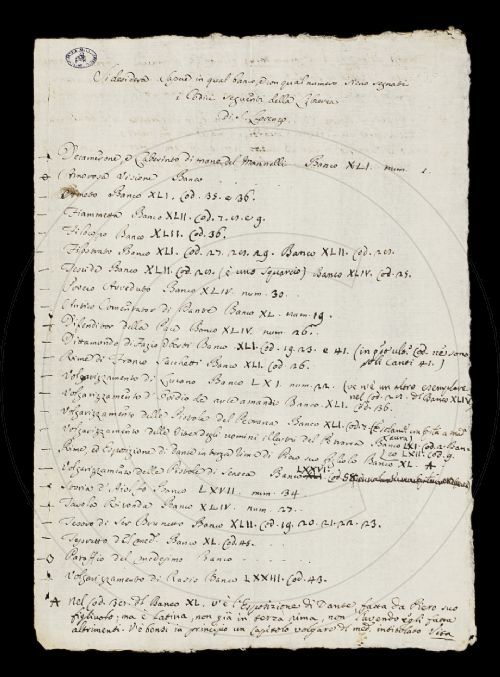 Si desidera sapere in qual banco, e con qual numero siano segnati
i Codici seguenti della Libreria
di S. Lorenzo.
Decamerone, e Laberinto di mano del Mannelli Banco XLI. num.
Amorosa Visione Banco
Ameto Banco XLI. Cod. 35. e 36.
Fiammetta Banco XLII. Cod. 7. e 9.
Filocopo Banco XLII. Cod. 36.
Filostrato Banco XLI. Cod. 27. 28. 29. Banco XLII. Cod. 28.
Teseide Banco XLII. Cod. 28. (è uno squarcio) Banco XLIV. Cod. 25.
Boezio Banco XLIV. num. 30.
Antico Comentator di Dante Banco XL. num. 19.
Difenditor della Pace Banco XLIV. num. 26.
Dittamondo di Fazio Banco XLI. Cod. 19. 23. e 41. (in Cod. ne sono
soli Canti 41.)
Rime di Franco Sacchetti Banco XLI. Cod. 26.
Volgarizzamento di Luciano Banco LXI. num. 22. (ve n'è un altro esemplare
nel Cod. 28. del Banco XLIV
Volgarizzamento d'Ovidio de arte amandi Banco XLI. Cod. 36.
Volgarizzamento delle Pistole del Petrarca Banco XLI. Cod.
Volgarizzamento delle Vite degli uomini illustri del Petrarca Banco LXI. Cod.
Banco LXII. Cod. 9.
Rime, ed Esposizione di Dante in terza rima di Piero suo figliuolo Banco XL. A
Volgarizzamento delle Pistole di Seneca Banco LXXVI. Cod. 58
Storia d'Aiolfo Banco LXVII. num. 34.
Tavola Ritonda Banco XLIV. num. 27.
Tesoro di Ser Brunetto Banco XLII. Cod. 19. 20. 21. 22. 23.
Tesoretto del med. Banco XL. Cod. 45.
Pataffio del medesimo Banco
Volgarizzamento di Rasis Banco LXXIII. Cod. 43.
A Nel Cod. 38. del Banco XL. v'è l'Esposizione di Dante fatta da Piero suo
figliuolo, ma è latina, non già in terza rima, non l'avendo egli fatta
altrimenti. V'è bensì in principio un Capitolo volgare del med. intitolato Vita